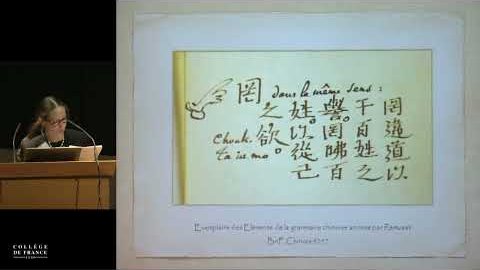 罔 dans le même sens :
罔違道以
干百姓之
譽。罔咈百
姓。以從己
之欲。
Chouk.
ta iu mo
Exemplaire des Eléments de la grammaire chinoise annoté par Rémusat
BnF, Chinois
COLLÈGE
DE FRANCE
1530